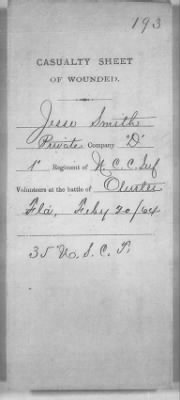 193
CASUALTY SHEET
OF WOUNDED.
Jesse Smith
Private Company "D"
1" Regiment of N. C. C. Inf
Volunteers at the battle of Olustee
Fla, Feby 20/64
35 U. S. C. T.